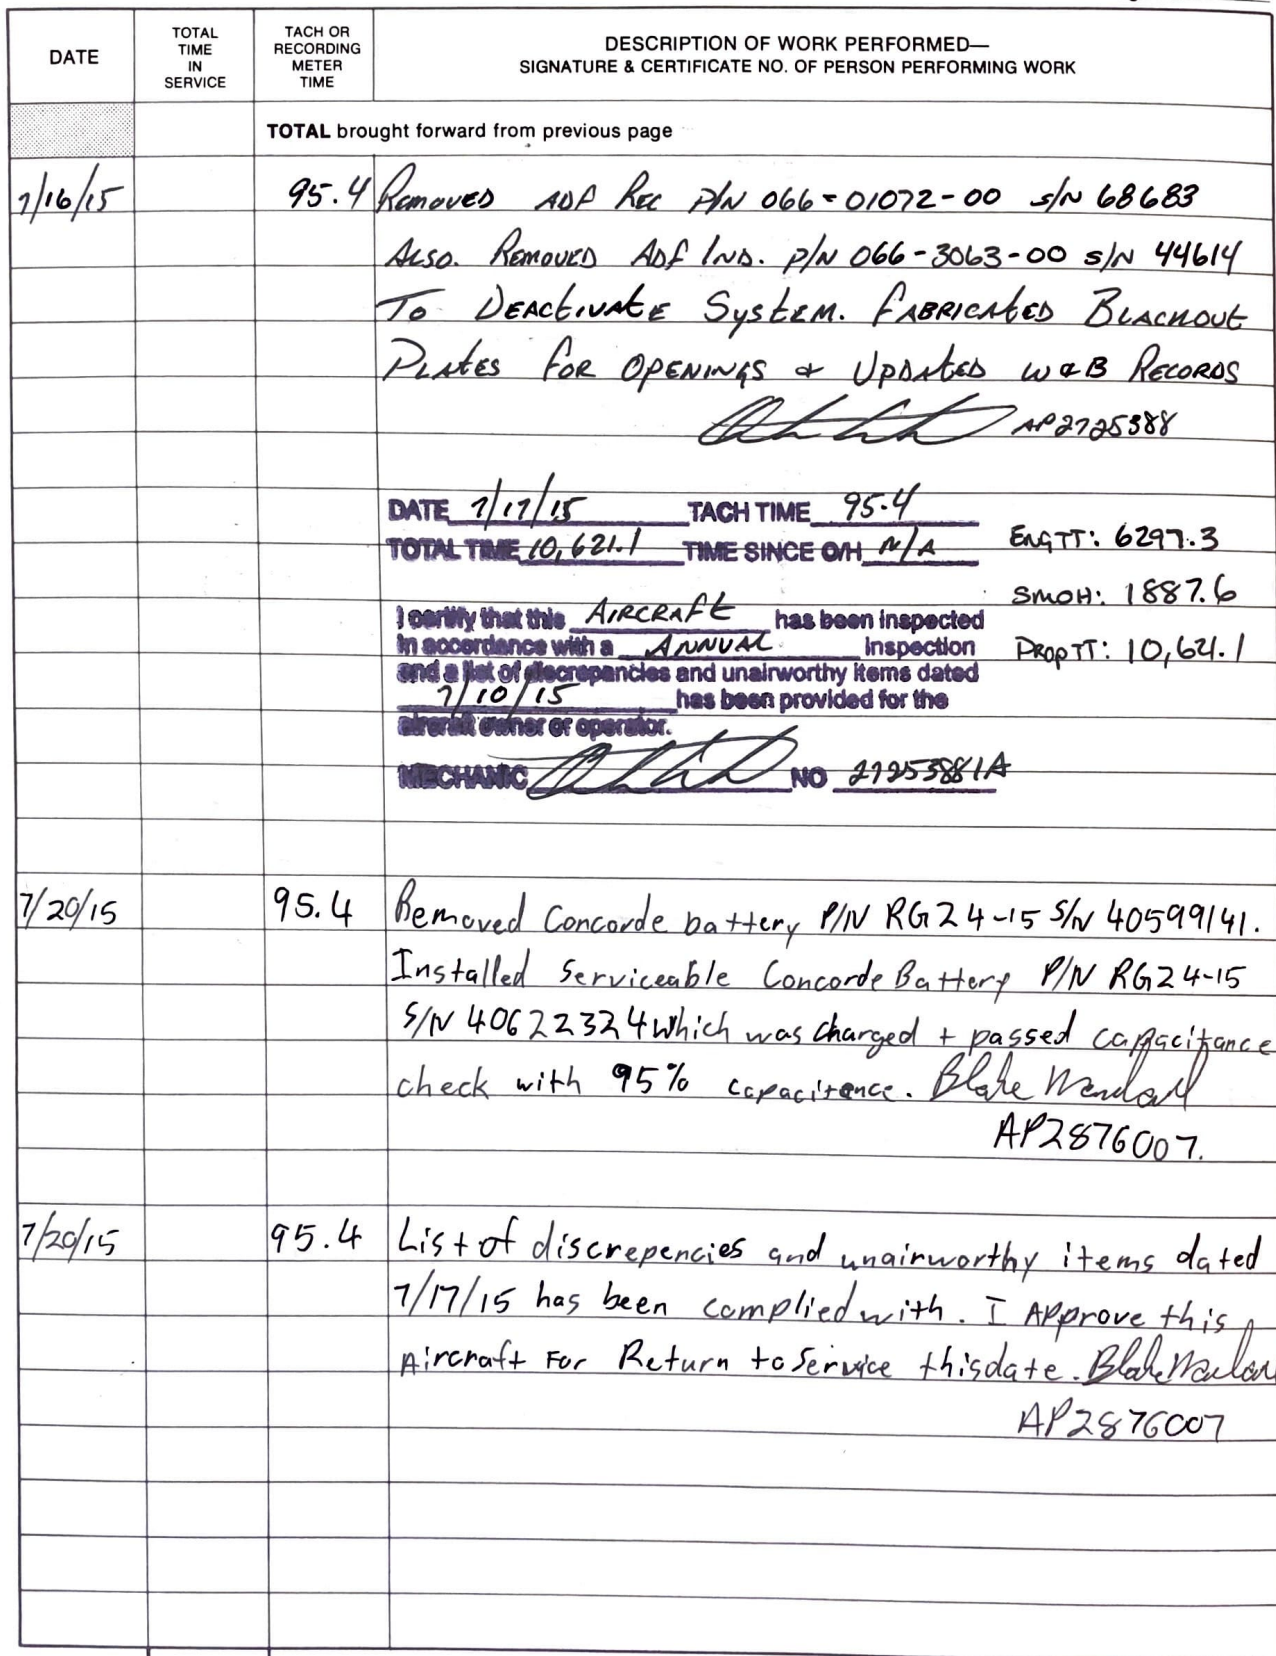 DATE
TOTAL TIME IN SERVICE
TACH OR RECORDING METER TIME
DESCRIPTION OF WORK PERFORMED—
SIGNATURE & CERTIFICATE NO. OF PERSON PERFORMING WORK
TOTAL brought forward from previous page
7/16/15 95.4 Removed ADF Rec P/N 066-01072-00 S/N 68683
Also. Removed ADF Ind. P/N 066-3063-00 S/N 44614
To Deactivate System. Fabricated Blackout
Plates for Openings & Updated W&B Records
AP2725388
DATE 7/17/15 TACH TIME 95.4
TOTAL TIME 10,621.1 TIME SINCE O/H N/A ENGTT: 6297.3
SMOH: 1887.6
I certify that this AIRCRAFT has been inspected
in accordance with a ANNUAL inspection PROPTT: 10,621.1
and a list of discrepancies and unairworthy items dated
7/10/15 has been provided for the
aircraft owner or operator.
MECHANIC NO 2725388IA
7/20/15 95.4 Removed Concorde battery P/N RG24-15 S/N 40599141.
Installed Serviceable Concorde Battery P/N RG24-15
S/N 40622324 which was charged + passed capacitance
check with 95% capacitence. Blake
AP2876007.
7/20/15 95.4 List of discrepencies and unairworthy items dated
7/17/15 has been complied with. I Approve this
Aircraft For Return to Service this date. Blake
AP2876007